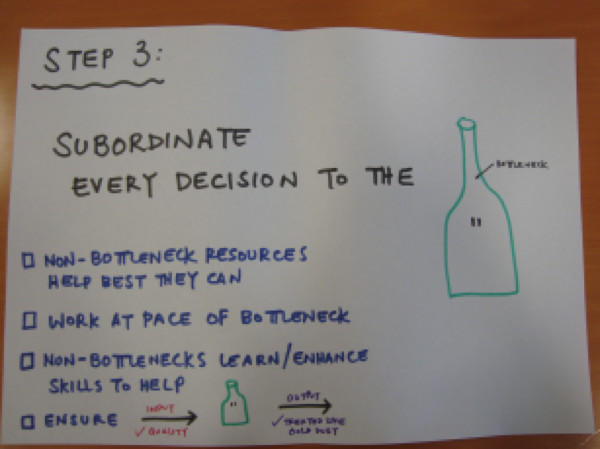 STEP 3:
SUBORDINATE
EVERY DECISION TO THE
BOTTLENECK
NON-BOTTLENECK RESOURCES
HELP BEST THEY CAN
WORK AT PACE OF BOTTLENECK
NON-BOTTLENECKS LEARN/ENHANCE
SKILLS TO HELP
ENSURE
INPUT
✓ QUALITY
OUTPUT
✓ TREATED LIKE
GOLD DUST